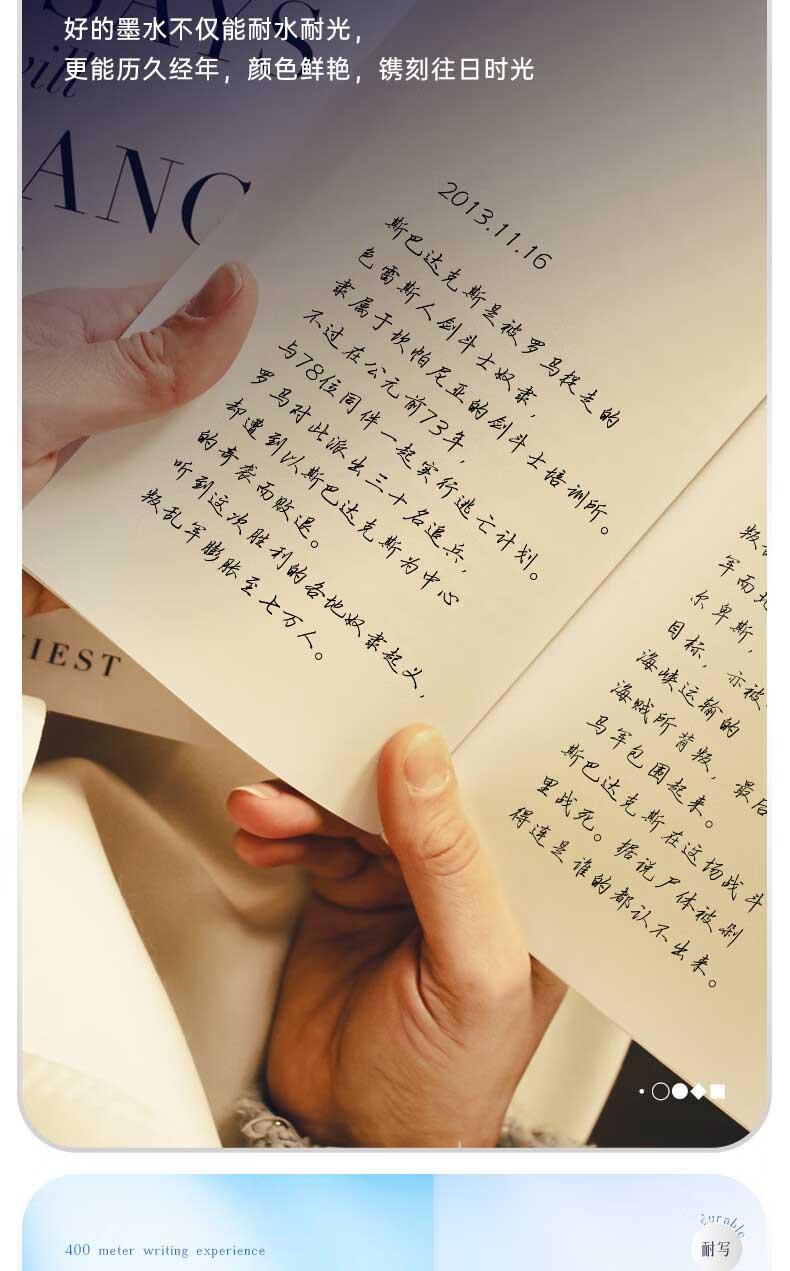 好的墨水不仅能耐水耐光，
更能历久经年，颜色鲜艳，镌刻往日时光
SAYS
will
ANC
2013.11.16
斯巴达克斯是被罗马捉走的
色雷斯人剑斗士奴隶，
隶属于坎帕尼亚的剑斗士培训所。
不过在公元前73年，
与78位同伴一起实行逃亡计划。
罗马对此派出三十名追兵，
却遭到以斯巴达克斯为中心
的奇袭而败退。
听到这次胜利的各地奴隶起义，
叛乱军膨胀至七万人。
IEST
叛
军而北
尔卑斯，
目标，亦被
海峡运输的
海贼所背叛，最后
马军包围起来。
斯巴达克斯在这场战斗
里战死。据说尸体被剁
得连是谁的都认不出来。
400 meter writing experience
durable
耐写